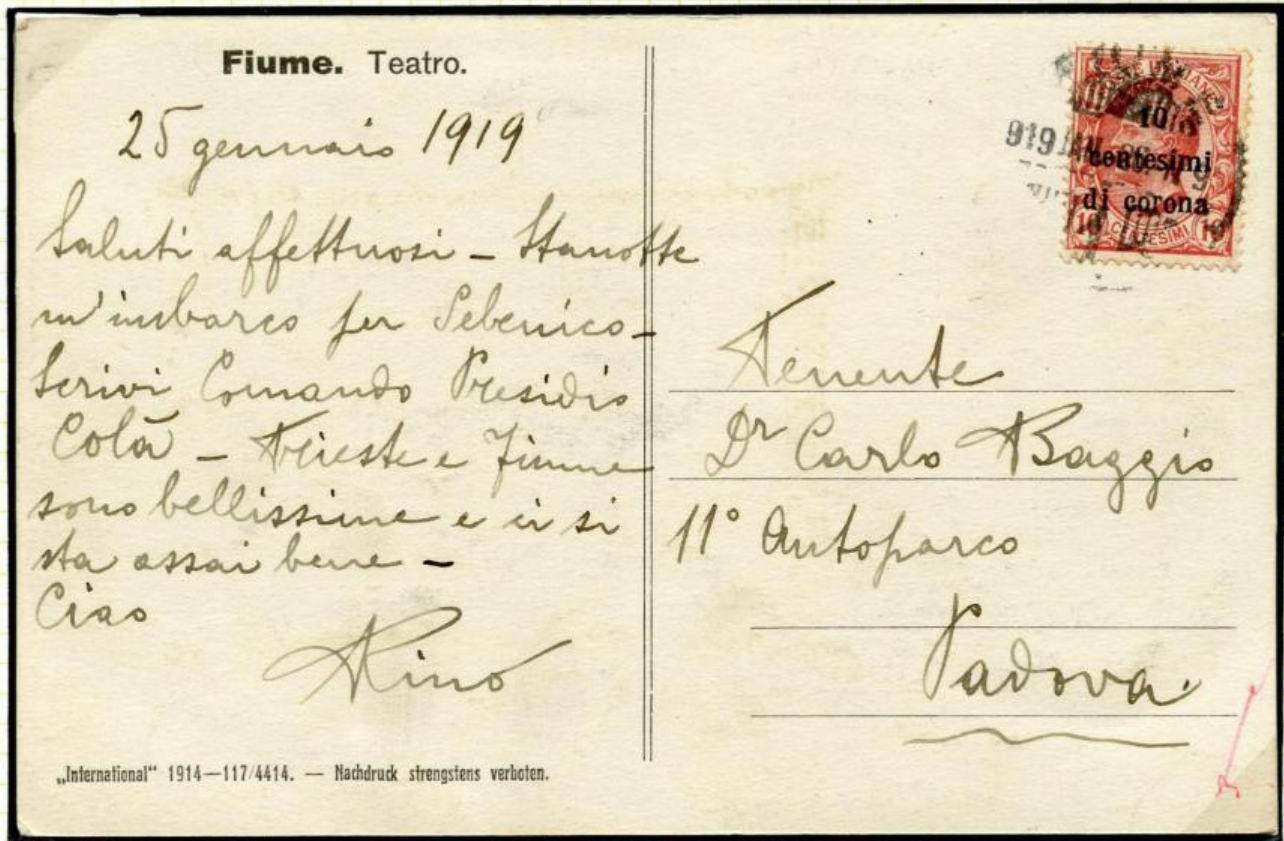 Fiume. Teatro.
25 gennaio 1919
Saluti affettuosi – Stanotte
m'imbarco per Sebenico –
Scrivi Comando Presidio
Colà – Trieste e Fiume
sono bellissime e ci si
sta assai bene –
Ciao
Rino
„International" 1914—117/4414. — Nachdruck strengstens verboten.
919 JAN
10
centesimi
di corona
10 10
Tenente
Dr Carlo Baggio
11° Autoparco
Padova